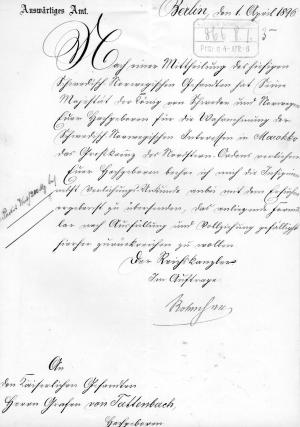 Auswärtiges Amt.
Berlin, den 1. April 1896
Nach einer Mittheilung des hiesigen
Schwedisch Norwegischen Gesandten hat Seine
Majestät der König von Schweden und Norwegen
Euer Hochgeboren für die Wahrnehmung der
Schwedisch Norwegischen Interessen in Marokko
das Großkreuz des Nordstern-Ordens verliehen.
Euer Hochgeboren beehre ich mich die Insignien
nebst Verleihungs-Urkunde anbei mit dem Ersuchen
ergebenst zu übersenden, das anliegende Formu-
lar nach Ausfüllung und Vollziehung gefälligst
hierher zurückreichen zu wollen.
Der Reichskanzler
Im Auftrage
An
den Kaiserlichen Gesandten
Herrn Grafen von Tattenbach,
Hochgeboren